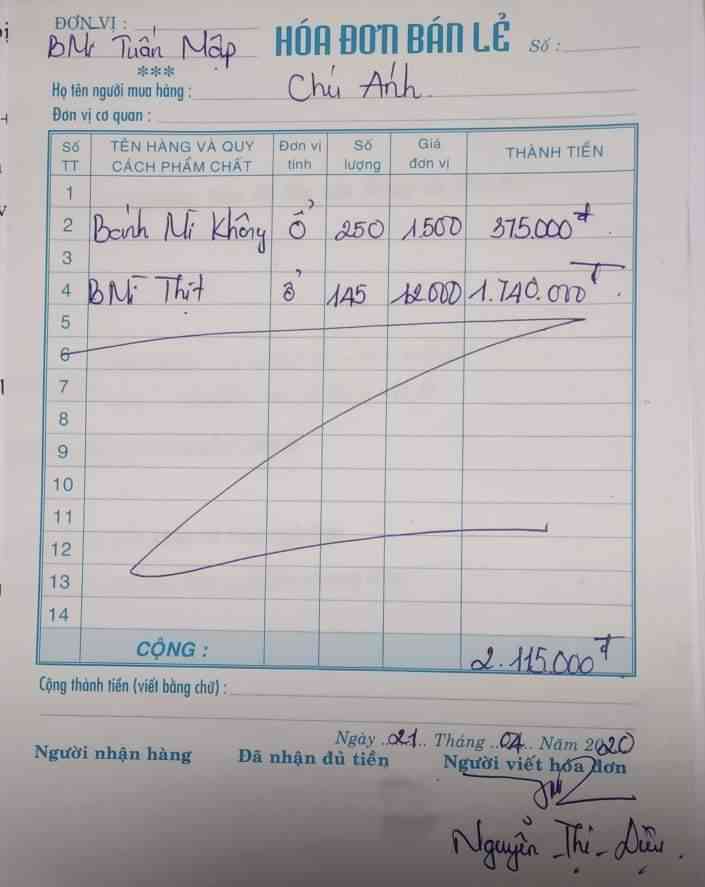 ĐƠN VỊ :
BMì Tuấn Mập
HÓA ĐƠN BÁN LẺ Số :
***
Họ tên người mua hàng : Chú Ánh
Đơn vị cơ quan :
Số TT TÊN HÀNG VÀ QUY CÁCH PHẨM CHẤT Đơn vị tính Số lượng Giá đơn vị THÀNH TIỀN
1
2 Bánh Mì Không ổ 250 1500 375.000đ
3
4 BMì Thịt ổ 145 12000 1.740.000đ
5
6
7
8
9
10
11
12
13
14
CỘNG : 2.115.000đ
Cộng thành tiền (viết bằng chữ) :
Ngày 21 Tháng 04 Năm 2020
Người nhận hàng Đã nhận đủ tiền Người viết hóa đơn
Nguyễn - Thị - Diệu